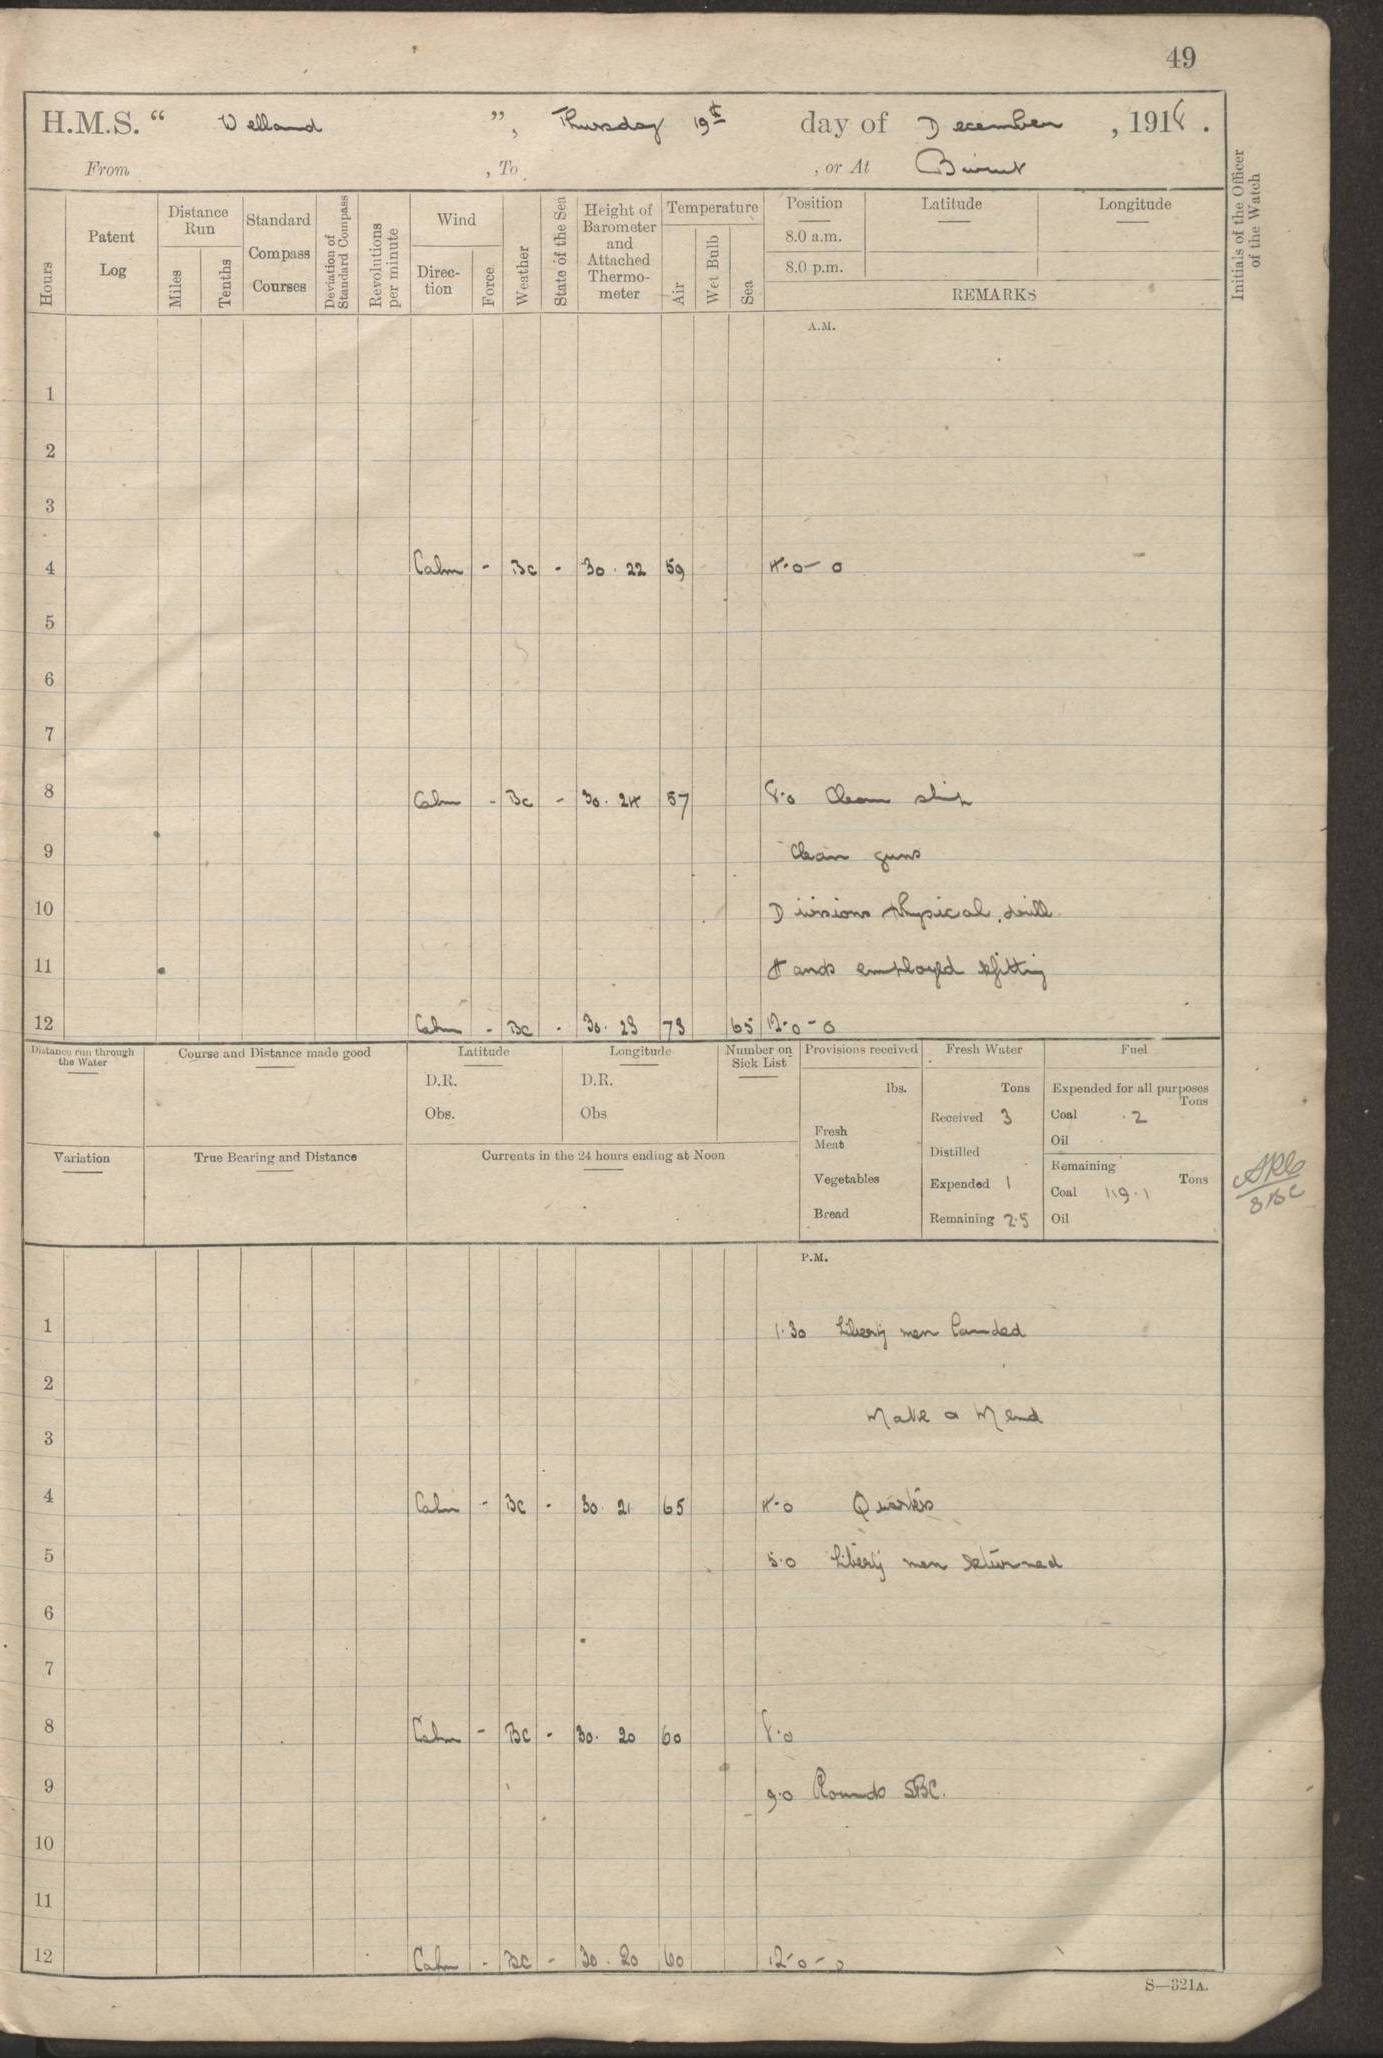 49
H.M.S. “ Welland ”, Thursday 19th day of December , 1918 .
From , To , or At Beirut
Hours
Patent Log
Distance Run
Miles
Tenths
Standard Compass Courses
Deviation of Standard Compass
Revolutions per minute
Wind
Direc-tion
Force
Weather
State of the Sea
Height of Barometer and Attached Thermo-meter
Temperature
Air
Wet Bulb
Sea
Position
8.0 a.m.
8.0 p.m.
Latitude
Longitude
REMARKS
Initials of the Officer of the Watch
A.M.
1
2
3
4 Calm - Bc - 30.22 59 4.0 - 0
5
6
7
8 Calm - Bc - 30.24 57 8.0 Clean ship
9 Clean guns
10 Divisions physical drill
11 Hands employed refitting
12 Calm - Bc - 30.23 73 65 12.0 - 0
Distance run through the Water
Course and Distance made good
Latitude
D.R.
Obs.
Longitude
D.R.
Obs
Number on Sick List
Provisions received
lbs.
Fresh Meat
Vegetables
Bread
Fresh Water
Tons
Received 3
Distilled
Expended 1
Remaining 2.5
Fuel
Expended for all purposes
Tons
Coal .2
Oil
Remaining
Tons
Coal 119.1
Oil
Variation
True Bearing and Distance
Currents in the 24 hours ending at Noon
P.M.
1 1.30 Liberty men landed
2
Make a Mend
3
4 Calm - Bc - 30.21 65 4.0 Quarters
5 5.0 Liberty men returned
6
7
8 Calm - BC - 30.20 60 8.0
9 9.0 Rounds SBC.
10
11
12 Calm - BC - 30.20 60 12.0 - 0
S—321A.